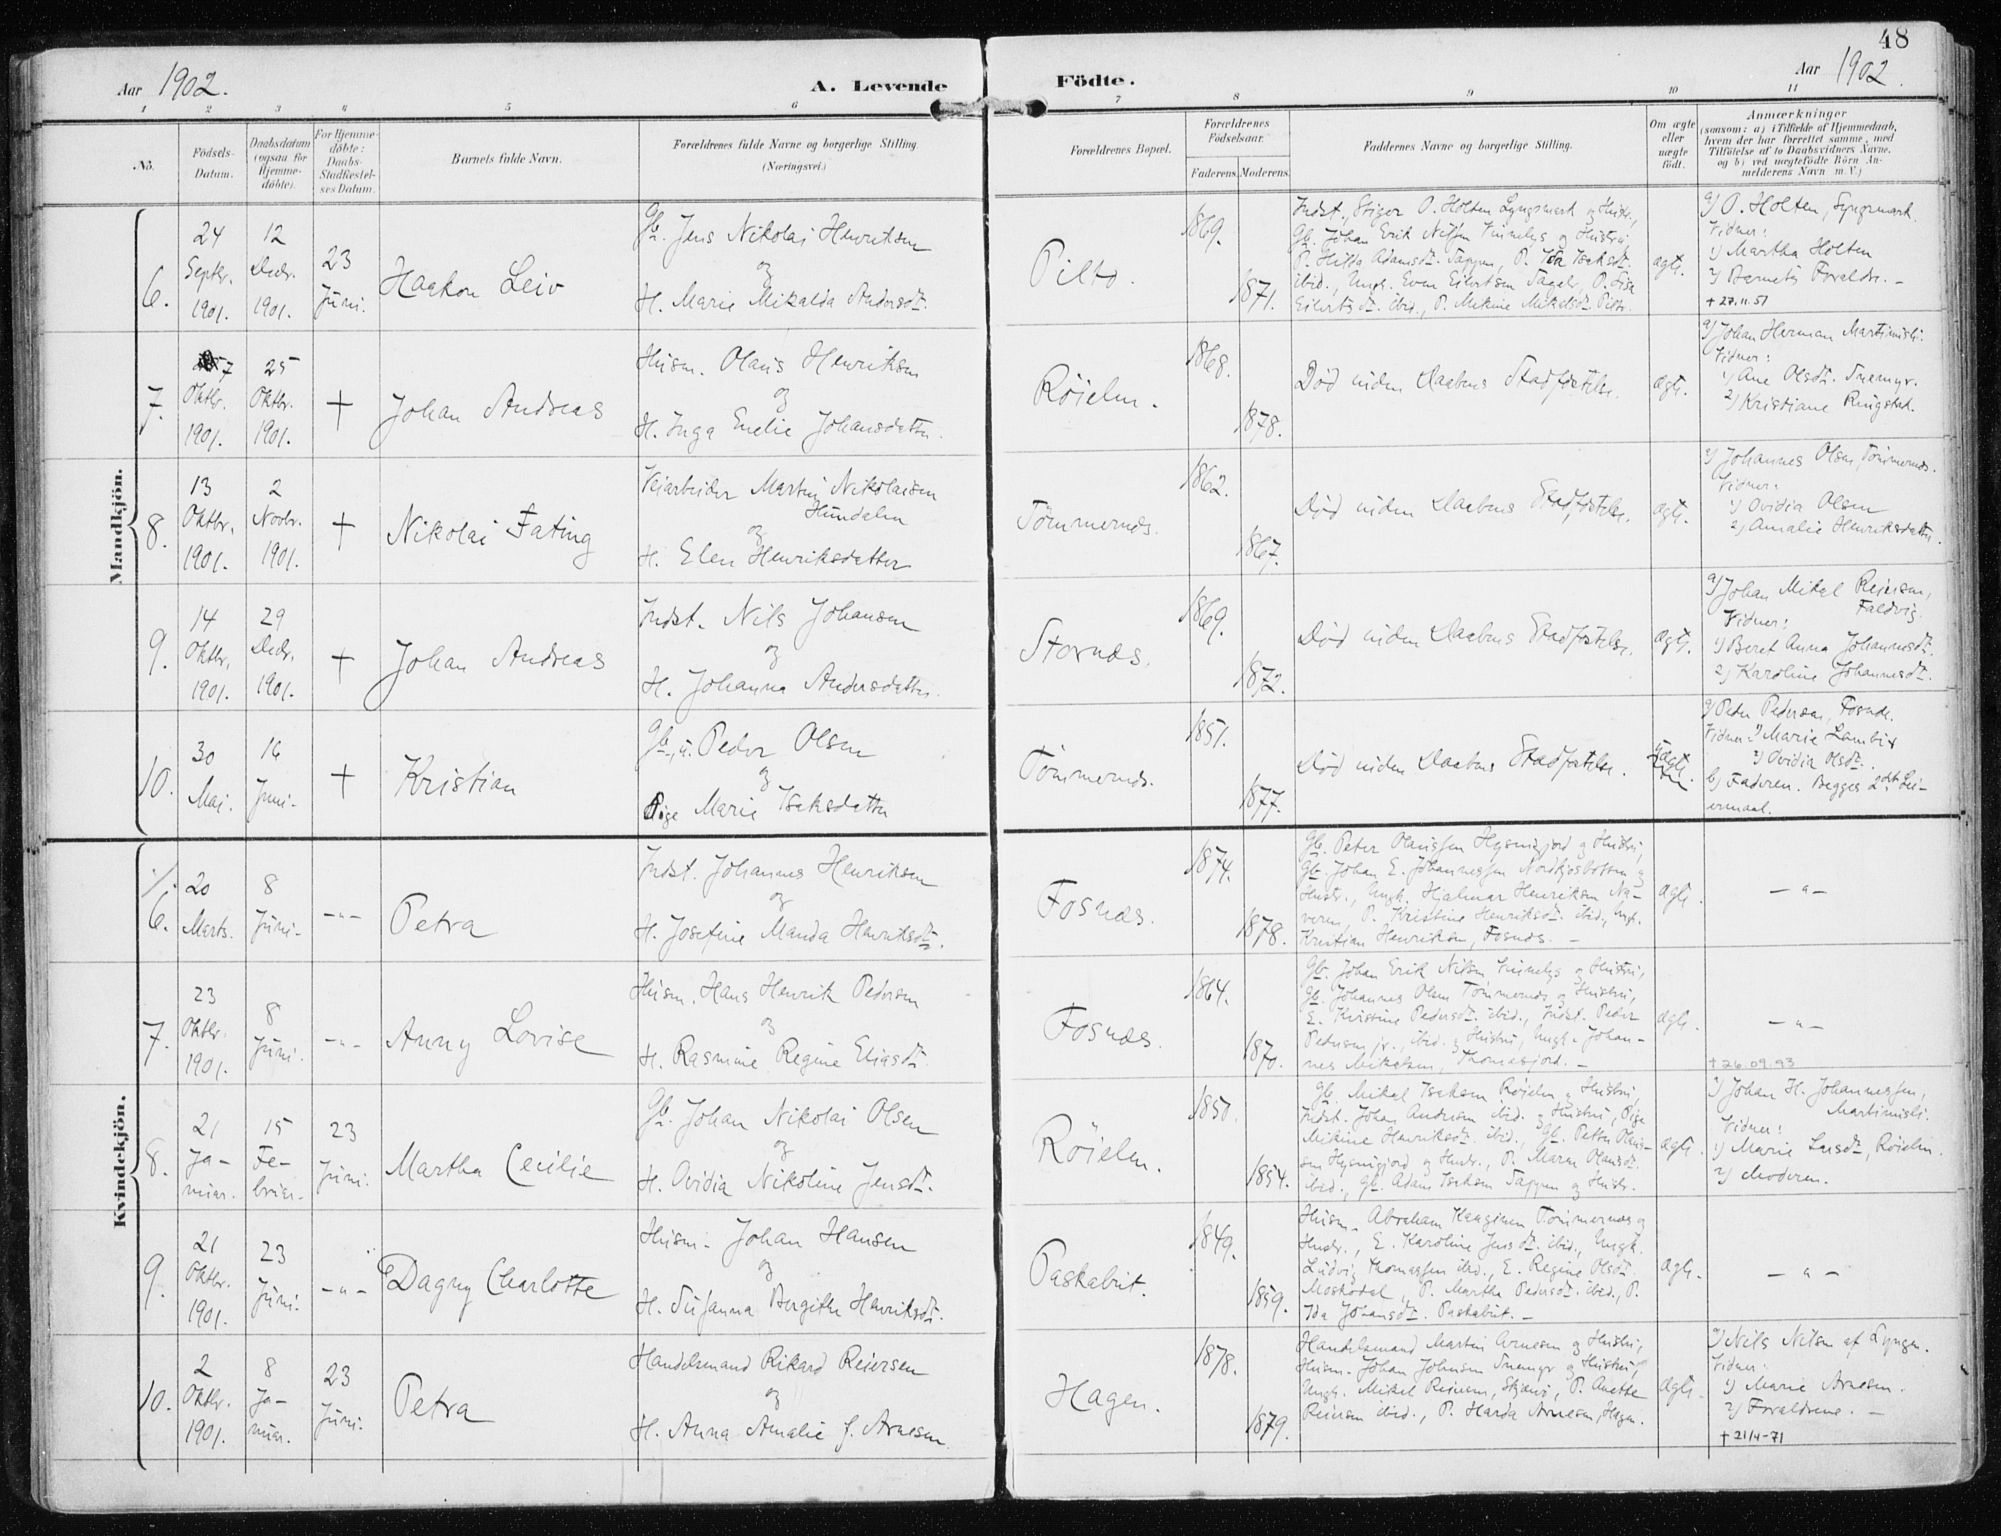 48
Aar 1902. A. Levende Födte. Aar 1902.
1 2 3 4 5 6 7 8 9 10 11
No.
Födsels-Datum.
Daabsdatum (ogsaa for Hjemme-döbte).
For Hjemme-döbte: Daabs-Stadfæstel-ses Datum.
Barnets fulde Navn.
Forældrenes fulde Navne og borgerlige Stilling. (Næringsvei.)
Forældrenes Bopæl.
Forældrenes Födselsaar.
Faderens. Moderens.
Faddernes Navne og borgerlige Stilling.
Om ægte eller uægte födt.
Anmærkninger
(saasom: a) i Tilfælde af Hjemmedaab,
hvem der har forrettet samme, med
Tilföielse af to Daabsvidners Navne,
og b) ved uægtefödte Börn An-
melderens Navn m. V.)
Mandkjön.
6.
24 Septbr. 1901.
12 Decbr. 1901.
23 Juni.
Haakon Leiv
Gb. Jens Nikolai Henriksen
og
H. Marie Mikalda Andersdt.
Pilto.
1869.
1871.
Gb. Johan Erik Nilsen Vinnelys og Hustru,
ægte.
a) O. Holten, Lyngsmark.
Vidner:
1) Martha Holten
2) Barnets Forældre. -
+ 27.11.51
7.
7 Oktbr. 1901.
25 Oktbr. 1901.
+
Johan Andreas
Husm. Olaus Henriksen
og
H. Inga Emelie Johansdatter.
Röieln.
1868.
1878.
Död inden Daabens Stadfæstelse.
ægte.
a) Johan Herman Martinusli.
Vidner:
1) Ane Olsdt. Snemyr.
2) Kristiane Ringstad.
8.
13 Oktbr. 1901.
2 Novbr. 1901.
+
Nikolai Fating
Veiarbeider Martin Nikolaisen
Hundalen
og
H. Elen Henriksdatter
Tömmernes.
1862.
1867.
Död inden Daabens Stadfæstelse.
ægte.
a) Johannes Olsen, Tömmernes.
Vidner:
1) Ovidia Olsen
2) Amalie Henriksdatter.
9.
14 Oktbr. 1901.
29 Decbr. 1901.
+
Johan Andreas
Indst. Nils Johansen
og
H. Johanna Andersdatter.
Stornes.
1869.
1872.
Död inden Daabens Stadfæstelse.
ægte.
a) Johan Mikal Reiersen,
Faldvig.
Vidner:
1) Beret Anna Johannesdt.
2) Karoline Johannesdt.
10.
30 Mai.
16 Juni.
+
Kristian
Gb., u. Peder Olsen
og
Pige Marie Isaksdatter
Tömmernes.
1851.
1877.
Död inden Daabens Stadfæstelse.
Uægte.
a) Peder Pedersen, Fosnes.
Vidner: 1) Marie Lambix
2) Ovidia Olsdt.
b) Faderen. Begges 2det Lei-
ermaal.
Kvindekjön.
6.
20 Marts.
8 Juni.
-"-
Petra
Indst. Johannes Henriksen
og
H. Josefine Manda Henriksdt.
Fosnes.
1874.
1878.
Gb. Peter Olaussen Hysingjord og Hustru,
Gb. Johan E. Johannessen Nordkjosbotten og
Hustr., Ungk. Hjalmar Henriksen Na-
veren, P. Kristine Henriksdt. ibid., Ungk.
Kristian Henriksen, Fosnes. -
ægte.
-"-
7.
23 Oktbr. 1901.
8 Juni.
-"-
Anny Lovise
Husm. Hans Henrik Pedersen
og
H. Rasmine Regine Eliasdt.
Fosnes.
1864.
1870.
Gb. Johan Erik Nilsen Vinnelys og Hustru,
Gb. Johannes Olsen Tömmernes og Hustru,
E. Kristine Pedersdt. ibid., Indst. Peder
Pedersen jr., ibid. og Hustru, Ungk. Johan-
nes Mikalsen, Thomasjord. -
ægte.
-"-
+ 26.09.93
8.
21 Ja-nuar.
15 Fe-bruar.
23 Juni.
Martha Cecilie
Gb. Johan Nikolai Olsen
og
H. Ovidia Nikoline Jensdt.
Röieln.
1850.
1854.
Gb. Mikal Isaksen Röieln og Hustru,
Indst. Johan Andersen ibid. og Hustru, Pige
Mikine Henriksdt. ibid., Gb. Petter Olaus-
sen Hysingjord og Hustr., P. Maren Olausdt.
ibid., Gb. Adam Isaksen Tappen og Hustr.
ægte.
a) Johan H. Johannessen,
Martinusli.
Vidner:
1) Marie Larsdt., Röieln.
2) Moderen.
9.
21 Oktbr. 1901.
23 Juni.
-"-
Dagny Charlotte
Husm. Johan Hansen
og
H. Susanna Bergithe Henriksdt.
Paskabut.
1849.
1859.
Husm. Abraham Haagensen Tömmernes og
Hustr., E. Karoline Jensdt. ibid., Ungk.
Ludvig Thomassen ibid., E. Regine Olsdt.
Moskodal, P. Martha Pedersdt. ibid., P.
Ida Johansdt. Paskabut. -
ægte.
-"-
10.
2 Oktbr. 1901.
8 Ja-nuar.
23 Juni.
Petra
Handelsmand Rikard Reiersen
og
H. Anna Amalie f. Arnesen
Hagen.
1878.
1879.
Handelsmand Martin Arnesen og Hustru,
Husm. Johan Johnsen Snemyr og Hustru,
Ungk. Mikal Reiersen, P. Anette
Reiersen ibid., P. Harda Arnesen, Hagen.
ægte.
a) Nils Nilsen af Lyngen.
Vidner:
1) Marie Arnesen.
2) Forældrene. -
+ 21/4-71